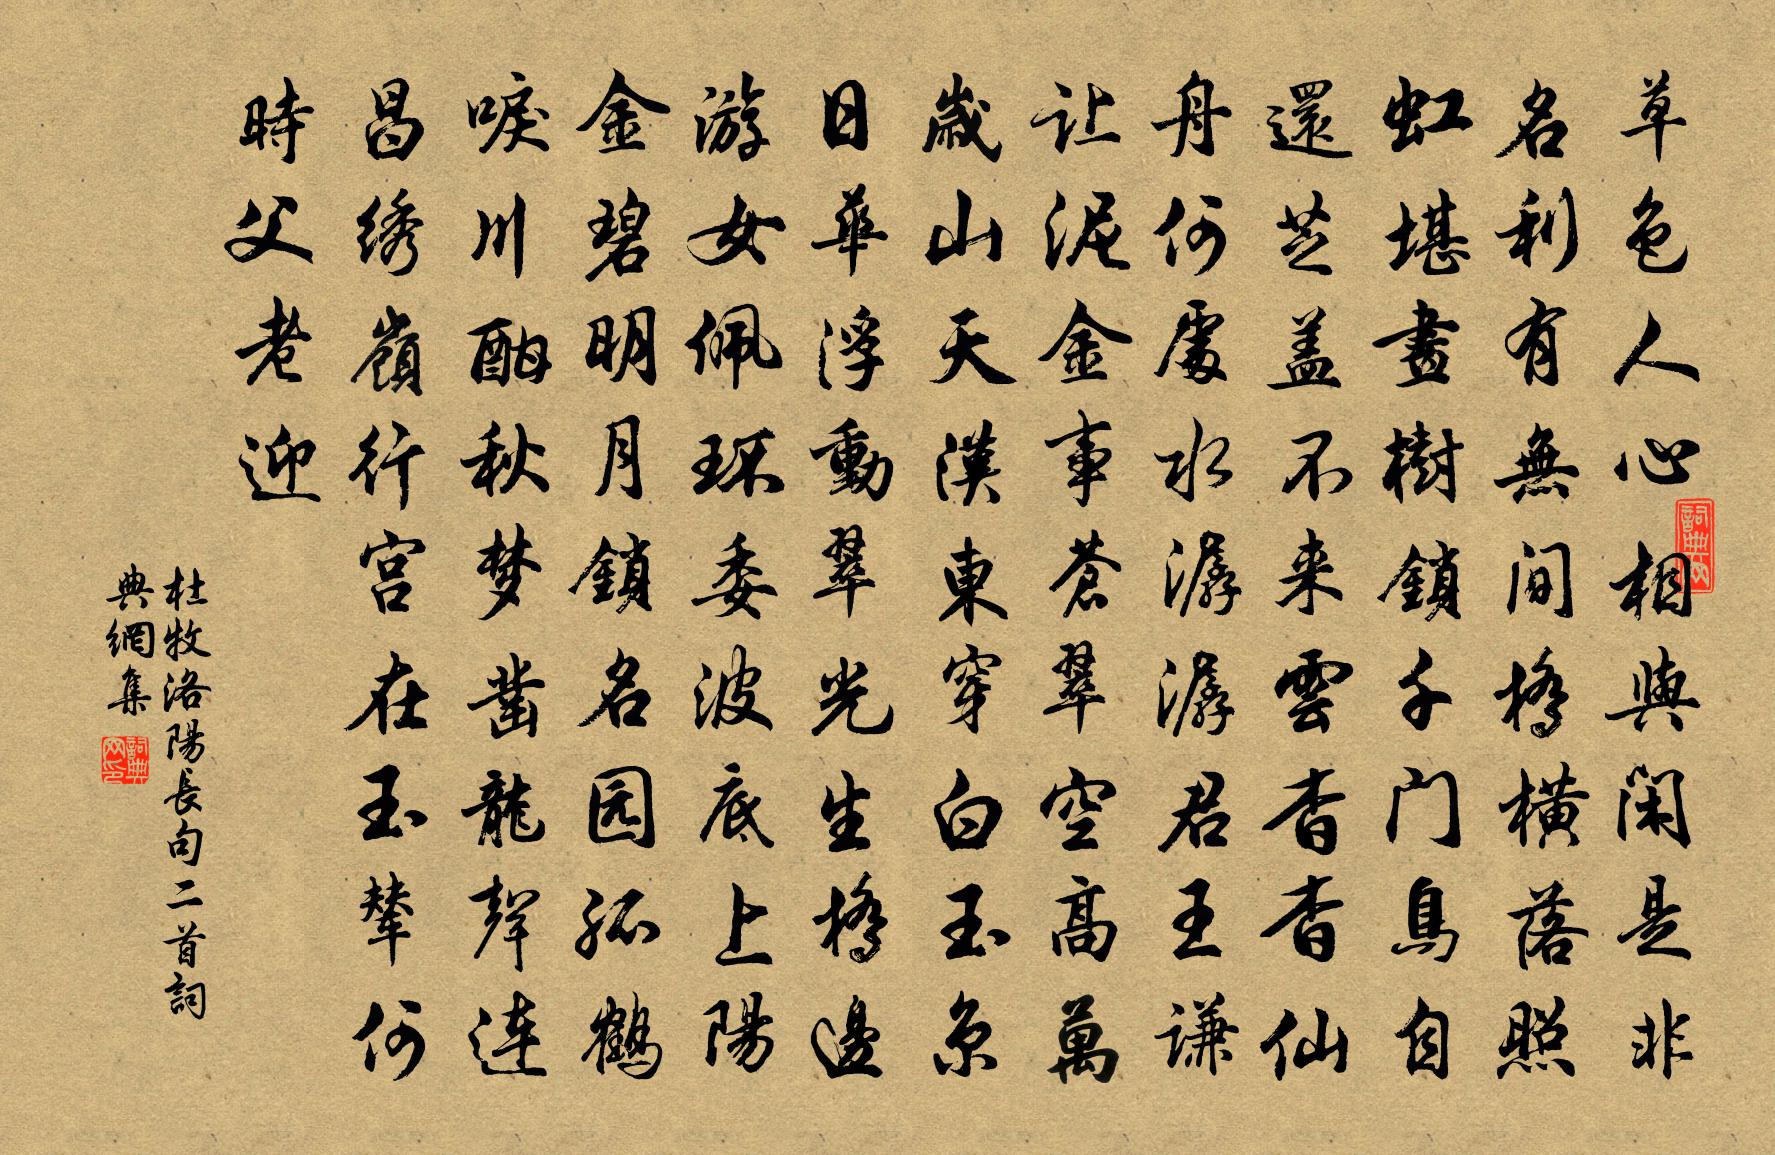 草色人心相與閑是非
名利有無間橋橫落照
虹堪畫樹鎖千門鳥自
還芝盖不来雲杳杳仙
舟何處水潺潺君王谦
让泥金事蒼翠空高萬
歲山天漢東穿白玉京
日華浮動翠光生橋邊
游女佩环委波底上陽
金碧明月鎖名园孤鶴
唳川酣秋梦凿龍聲連
昌绣嶺行宫在玉輦何
時父老迎
杜牧洛陽長句二首詞
典網集
詞典网
詞典网印